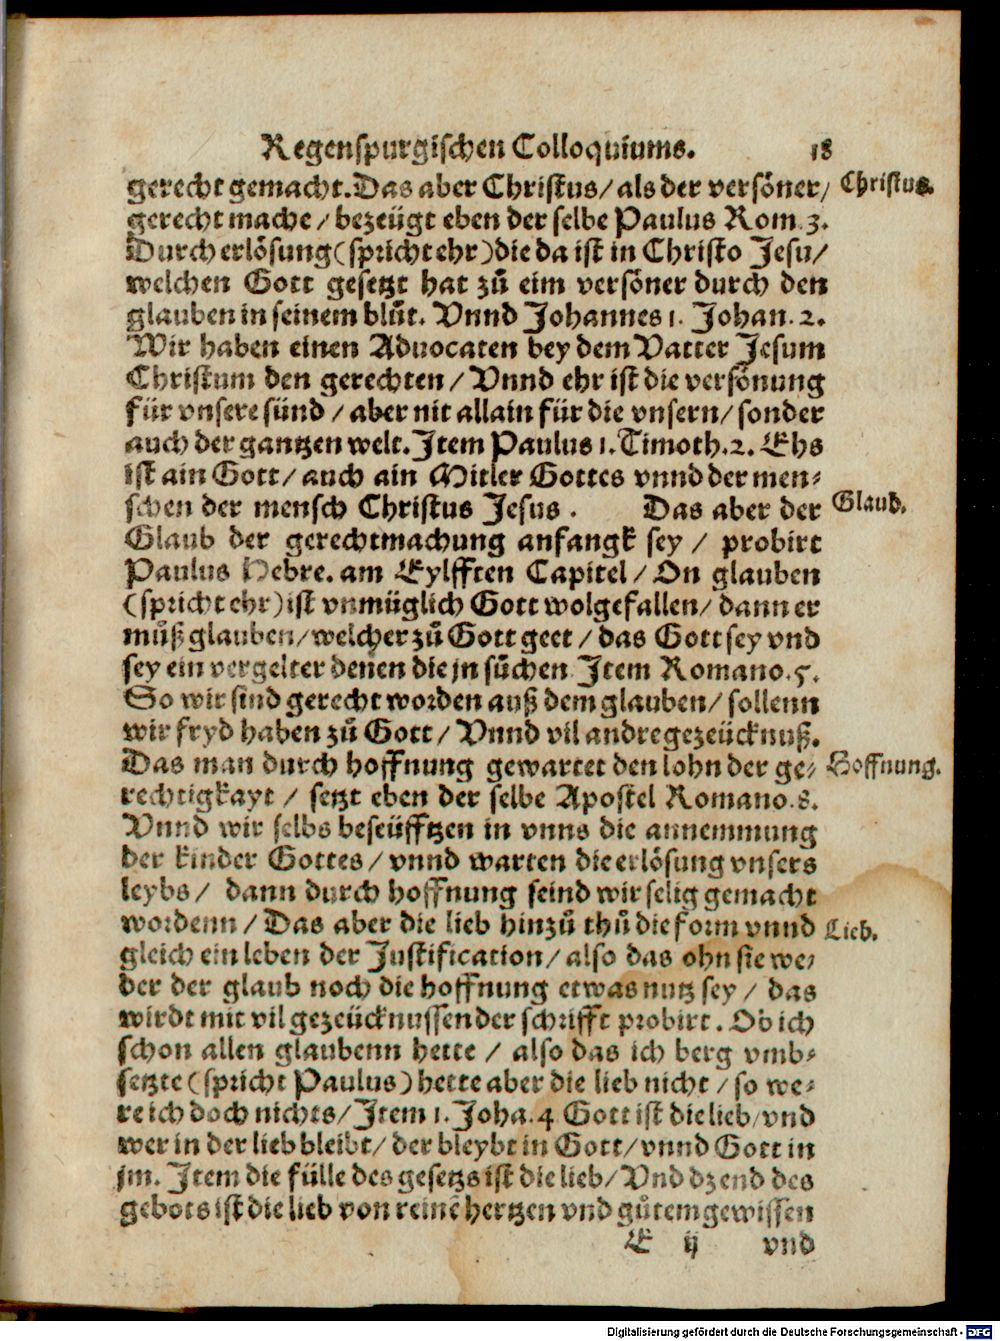 Regenspurgischen Colloquiums. 18
gerecht gemacht. Das aber Christus / als der versöner / Christus.
gerecht mache / bezeügt eben der selbe Paulus Rom. 3.
Durch erlösung (spricht ehr) die da ist in Christo Jesu /
welchen Gott gesetzt hat zů eim versöner durch den
glauben in seinem blůt. Vnnd Johannes 1. Johan. 2.
Wir haben einen Aduocaten bey dem Vatter Jesum
Christum den gerechten / Vnnd ehr ist die versönung
für vnsere sünd / aber nit allain für die vnsern / sonder
auch der gantzen welt. Item Paulus 1. Timoth. 2. Ehs
ist ain Gott / auch ain Mitler Gottes vnnd der men⸗
schen der mensch Christus Jesus. Das aber der Glaub.
Glaub der gerechtmachung anfangk sey / probirt
Paulus Hebre. am Eylfften Capitel / On glauben
(spricht ehr) ist vnmüglich Gott wolgefallen / dann er
můß glauben / welcher zů Gott geet / das Gott sey vnd
sey ein vergelter denen die jn sůchen. Item Romano. 5.
So wir sind gerecht worden auß dem glauben / sollenn
wir fryd haben zů Gott / Vnnd vil andre gezeücknuß.
Das man durch hoffnung gewartet den lohn der ge⸗ Hoffnung.
rechtigkayt / setzt eben der selbe Apostel Romano. 8.
Vnnd wir selbs beseüfftzen in vnns die annemmung
der kinder Gottes / vnnd warten die erlösung vnsers
leybs / dann durch hoffnung seind wir selig gemacht
wordenn / Das aber die lieb hinzů thů die form vnnd Lieb.
gleich ein leben der Justification / also das ohn sie we⸗
der der glaub noch die hoffnung etwas nutz sey / das
wirdt mit vil gezeücknussen der schrifft probirt. Ob ich
schon allen glaubenn hette / also das ich berg vmb⸗
setzte (spricht Paulus) hette aber die lieb nicht / so we⸗
re ich doch nichts / Item 1. Joha. 4 Gott ist die lieb / vnd
wer in der lieb bleibt / der bleybt in Gott / vnnd Gott in
jm. Item die fülle des gesetzs ist die lieb / Vnd dz end des
gebots ist die lieb von reinē hertzen vnd gůtem gewissen
E ij vnd
Digitalisierung gefördert durch die Deutsche Forschungsgemeinschaft - DFG